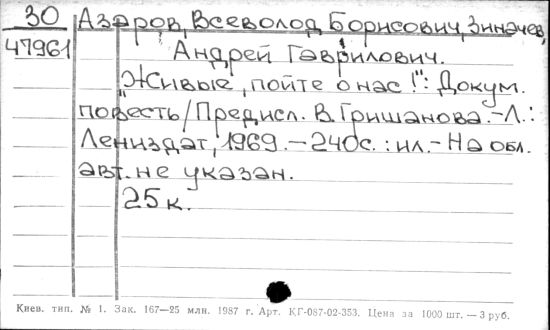 30 Азаров, Всеволод Борисович, Зиначев,
47961 Андрей Гаврилович.
"Живые, пойте о нас!": Докум.
повесть/Предисл. В. Гришанова. - Л.:
Лениздат, 1969. - 240с. : ил. - На обл.
авт. не указан.
25 к.
Киев. тип. № 1. Зак. 167—25 млн. 1987 г. Арт. КГ-087-02-353. Цена за 1000 шт. — 3 руб.